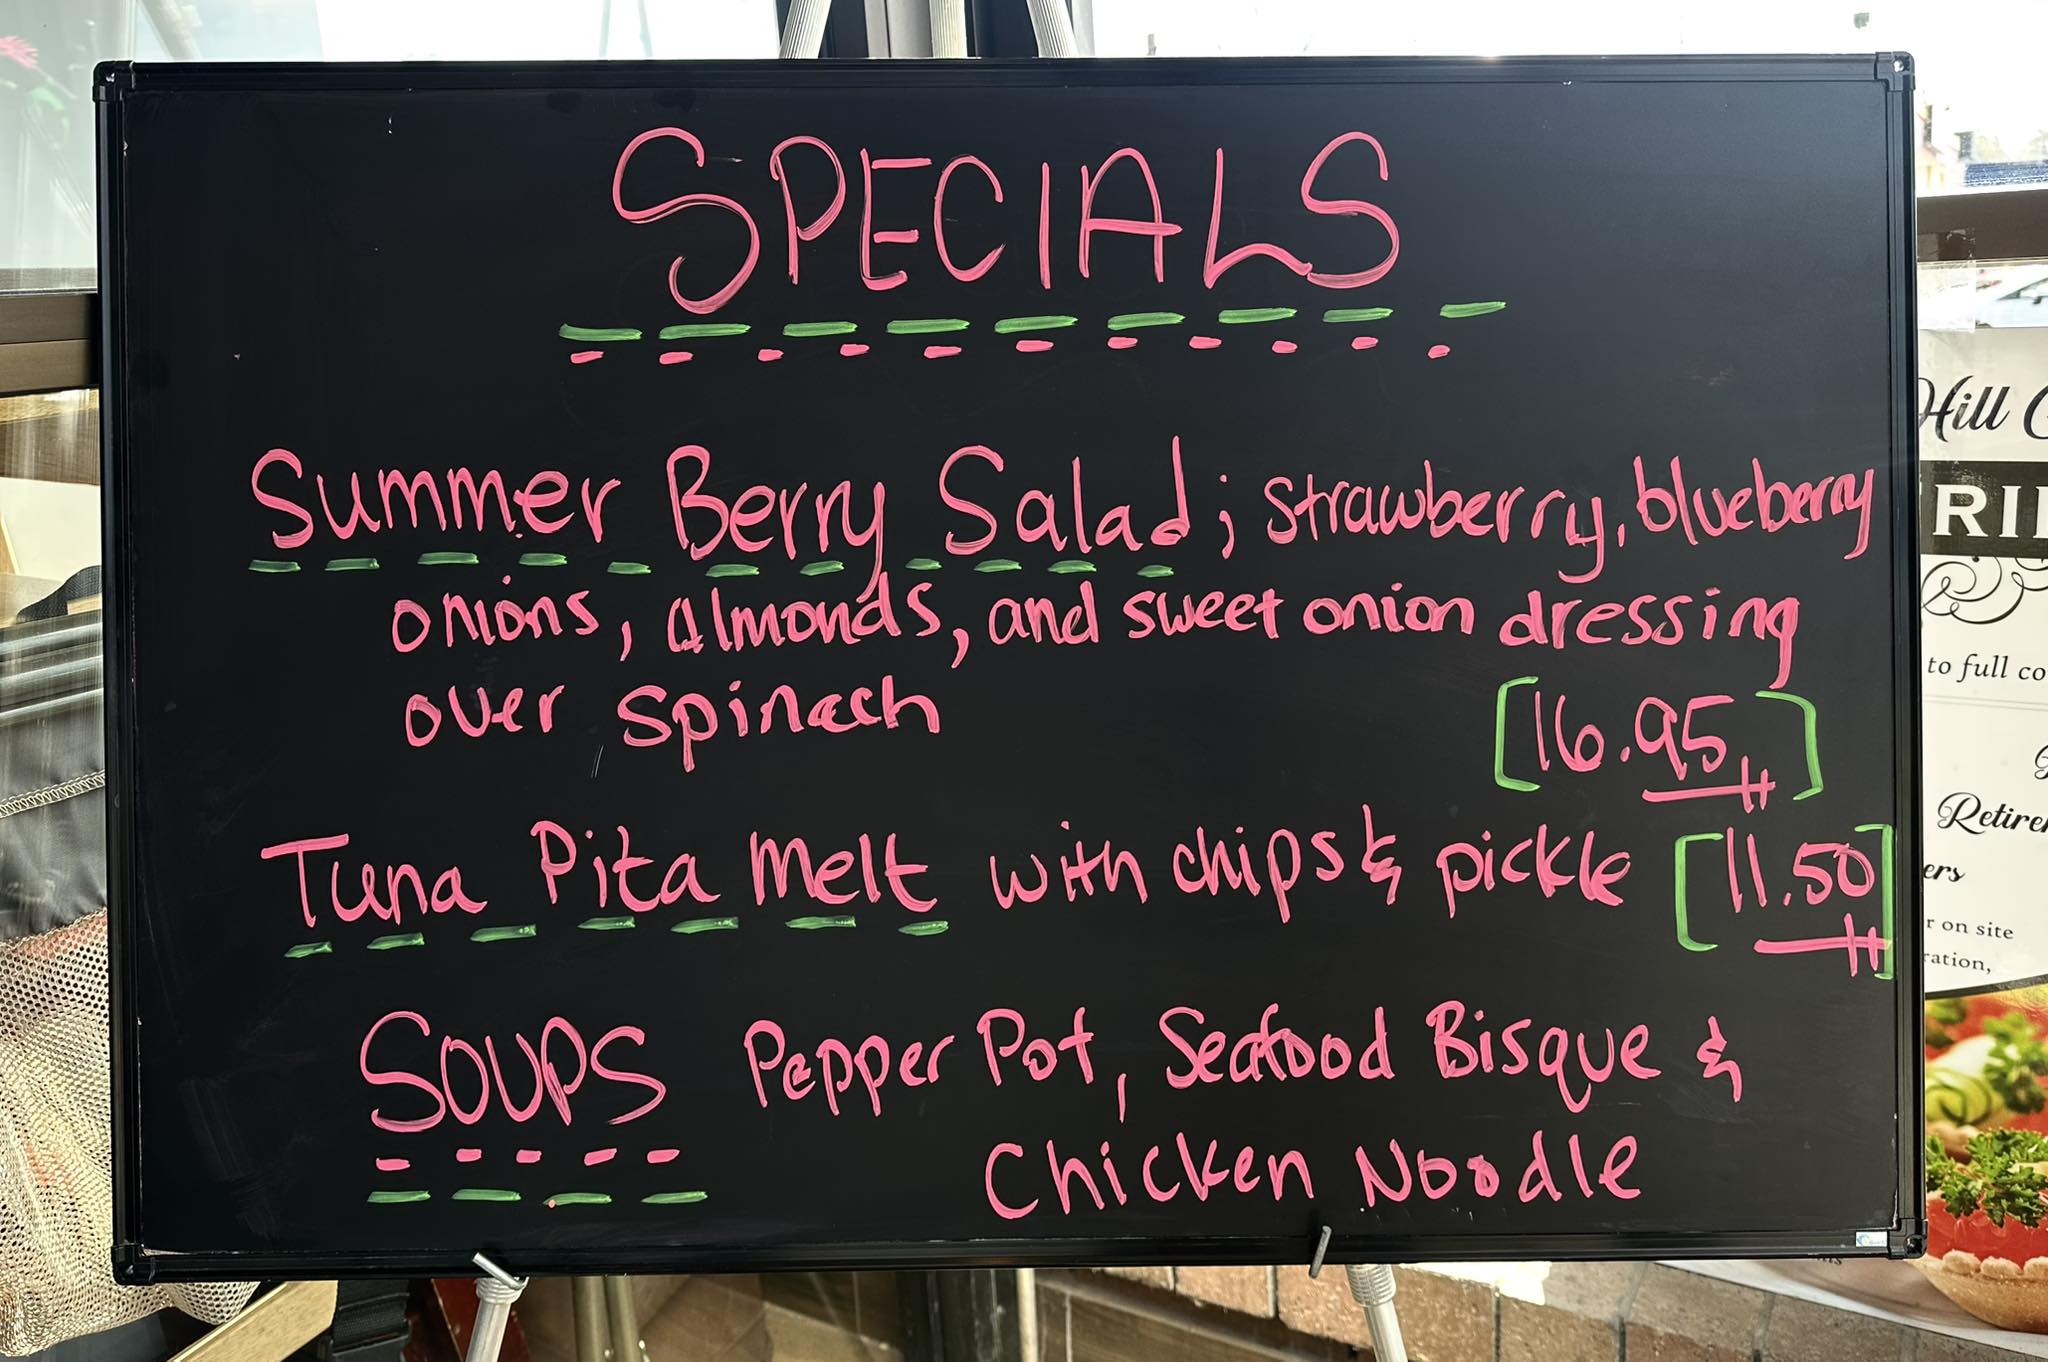 SPECIALS
Summer Berry Salad; strawberry, blueberry
onions, almonds, and sweet onion dressing
over spinach [16.95]
Tuna Pita Melt with chips & pickle [11.50]
SOUPS Pepper Pot, Seafood Bisque &
Chicken Noodle
Hill
to full co
Retire
ers
r on site
ration,